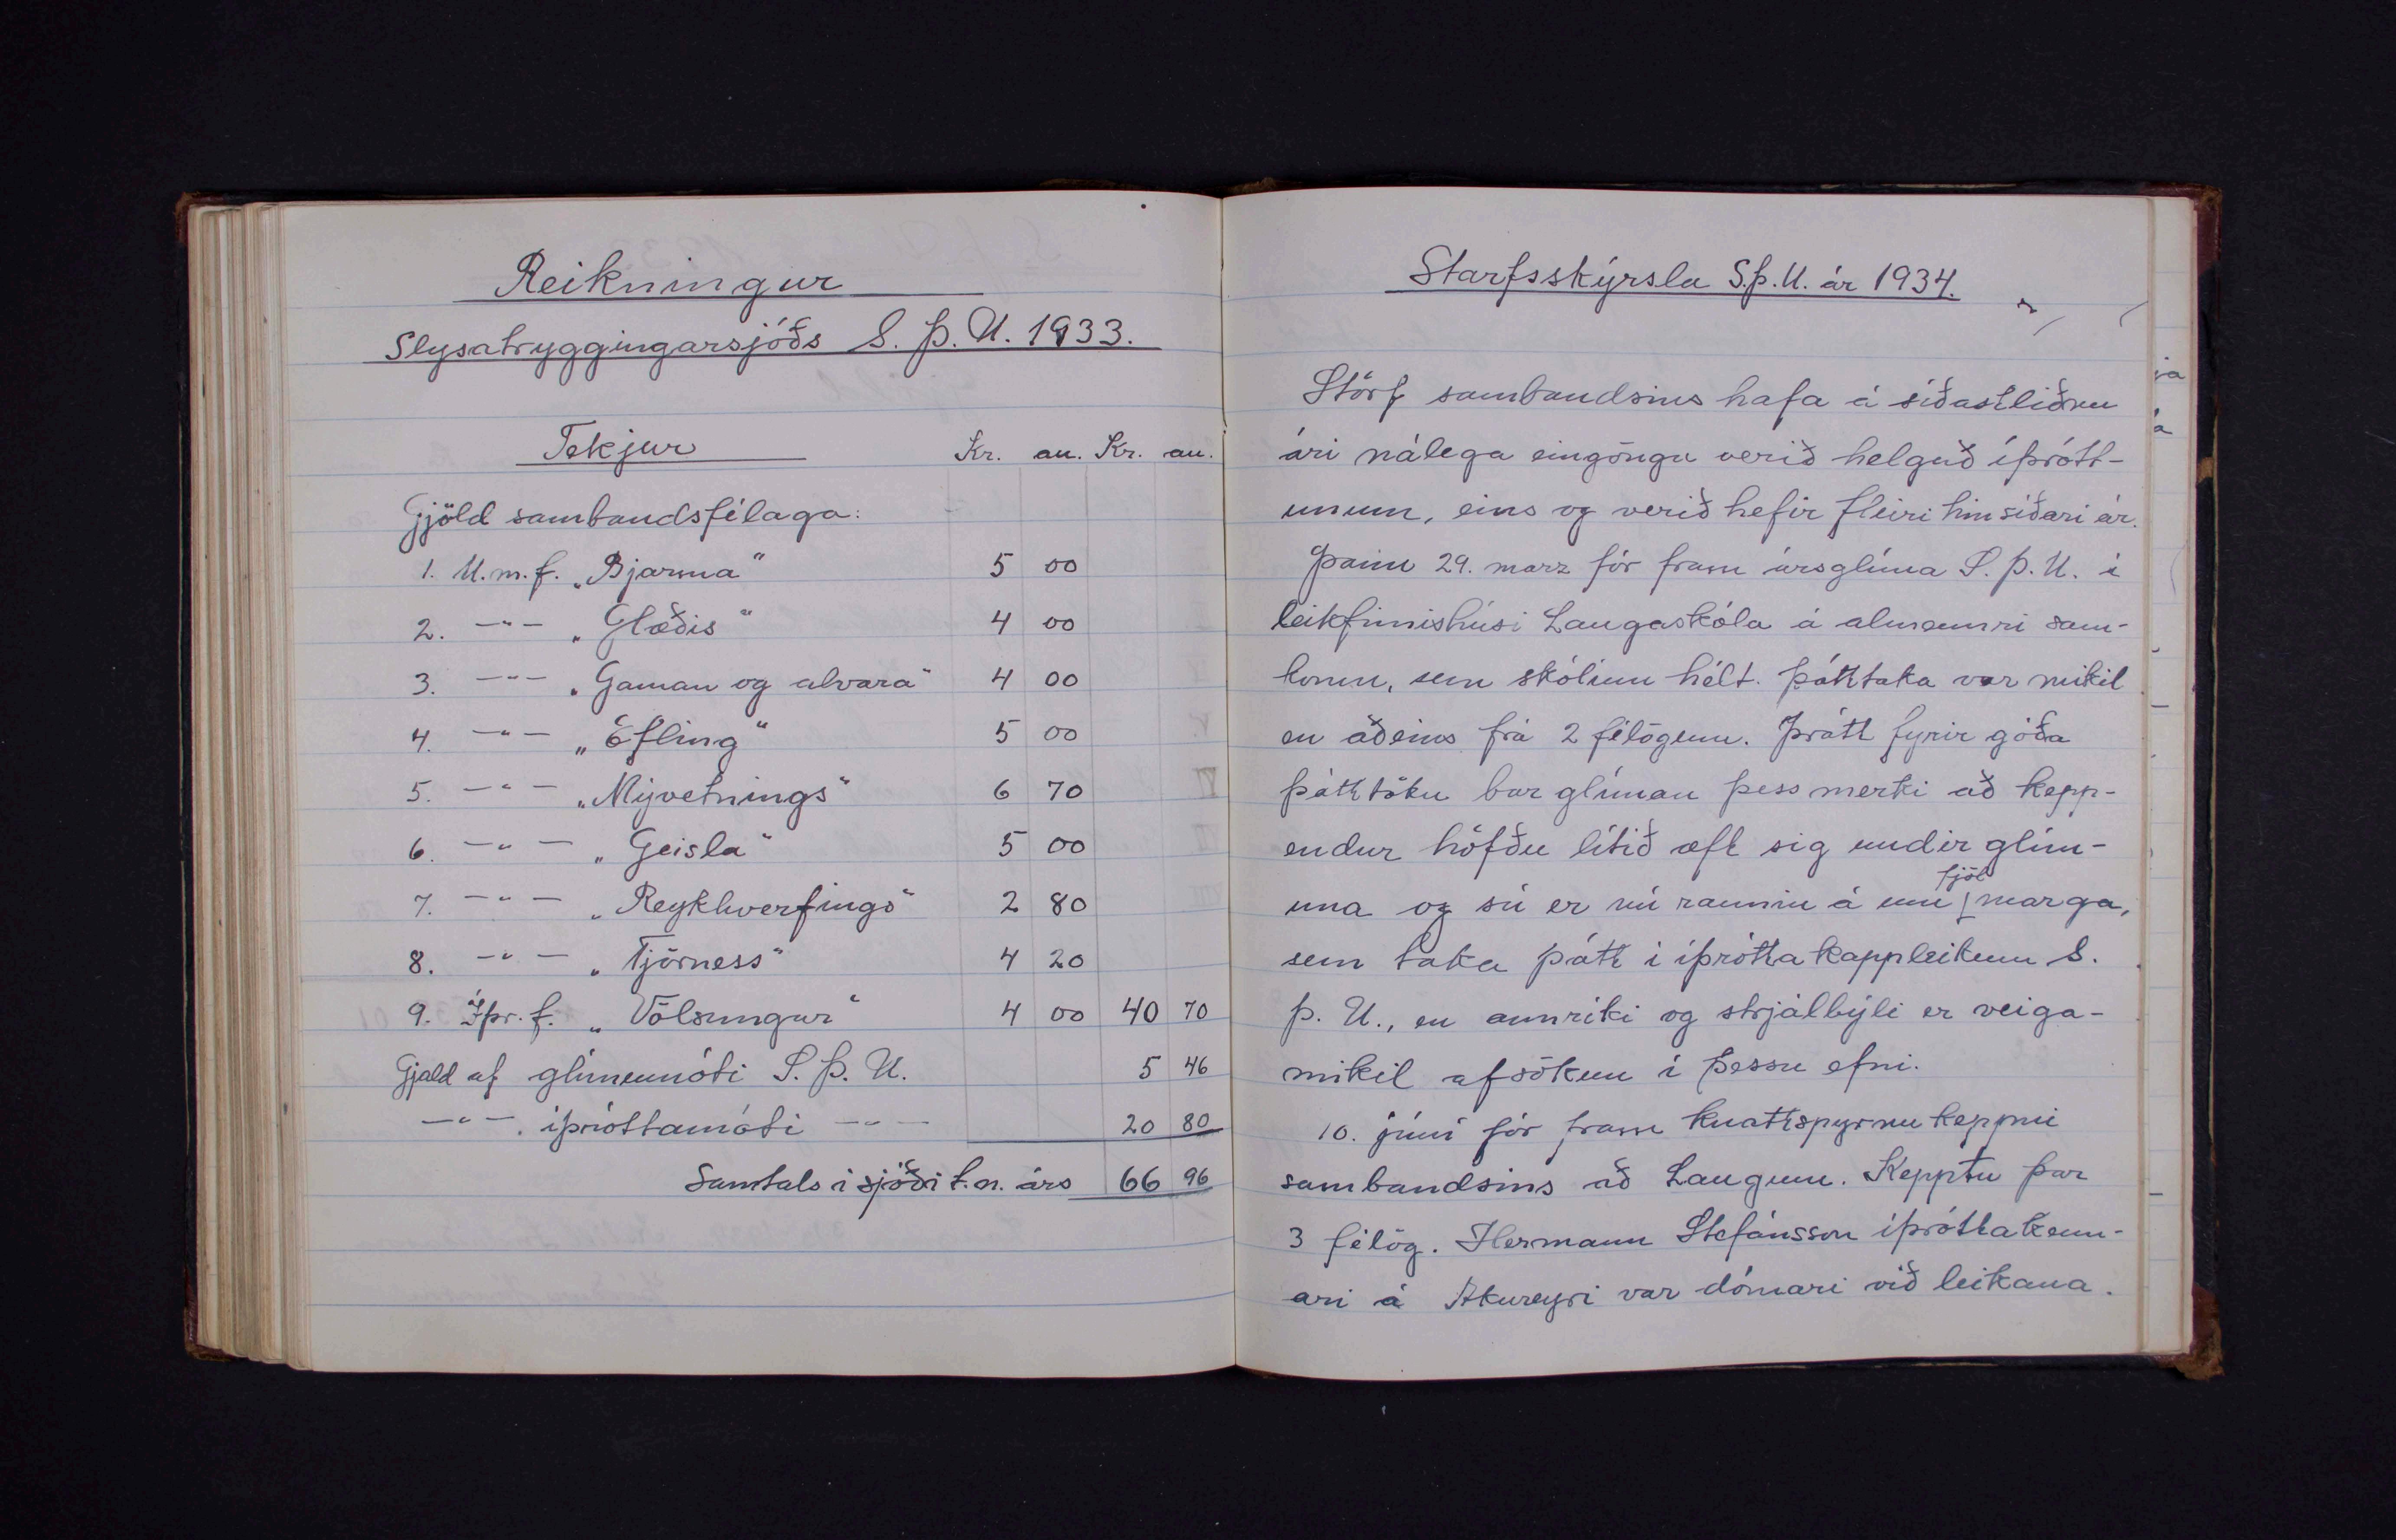 Reikningur
Slysatryggingarsjóðs S. Þ. U. 1933.
Tekjur Kr. au. Kr. au.
Gjöld sambandsfélaga:
1. U.m.f. „Bjarma" 5 00
2. —"— „Glæðis" 4 00
3. —"— „Gaman og alvara" 4 00
4. —"— „Efling" 5 00
5. —"— „Mývetnings" 6 70
6. —"— „Geisla" 5 00
7. —"— „Reykhverfings" 2 80
8. —"— „Tjörness" 4 20
9. Íþr.f. „Völsungur" 4 00 40 70
Gjald af glímumóti S. Þ. U. 5 46
—"— . íþróttamóti —"— 20 80
Samtals í sjóði t.n. árs 66 96
Starfsskýrsla S.Þ.U. ár 1934.
Störf sambandsins hafa á síðastliðnu
ári nálega eingöngu verið helguð íþrótt-
unum, eins og verið hefir fleiri hin síðari ár.
Þann 29. marz fór fram ársglíma S. Þ. U. í
leikfimishúsi Laugaskóla á almennri sam-
komu, sem skólinn hélt. Þátttaka var mikil
en aðeins frá 2 félögum. Þrátt fyrir góða
þátttöku bar glíman þess merki að kepp-
endur höfðu lítið æft sig undir glím-
una og sú er nú raunin á um fjöl marga,
sem taka þátt í íþróttakappleikum S.
Þ. U., en annríki og strjálbýli er veiga-
mikil afsökun í þessu efni.
10. júní fór fram knattspyrnukeppni
sambandsins að Laugum. Kepptu þar
3 félög. Hermann Stefánsson íþróttakenn-
ari á Akureyri var dómari við leikana.